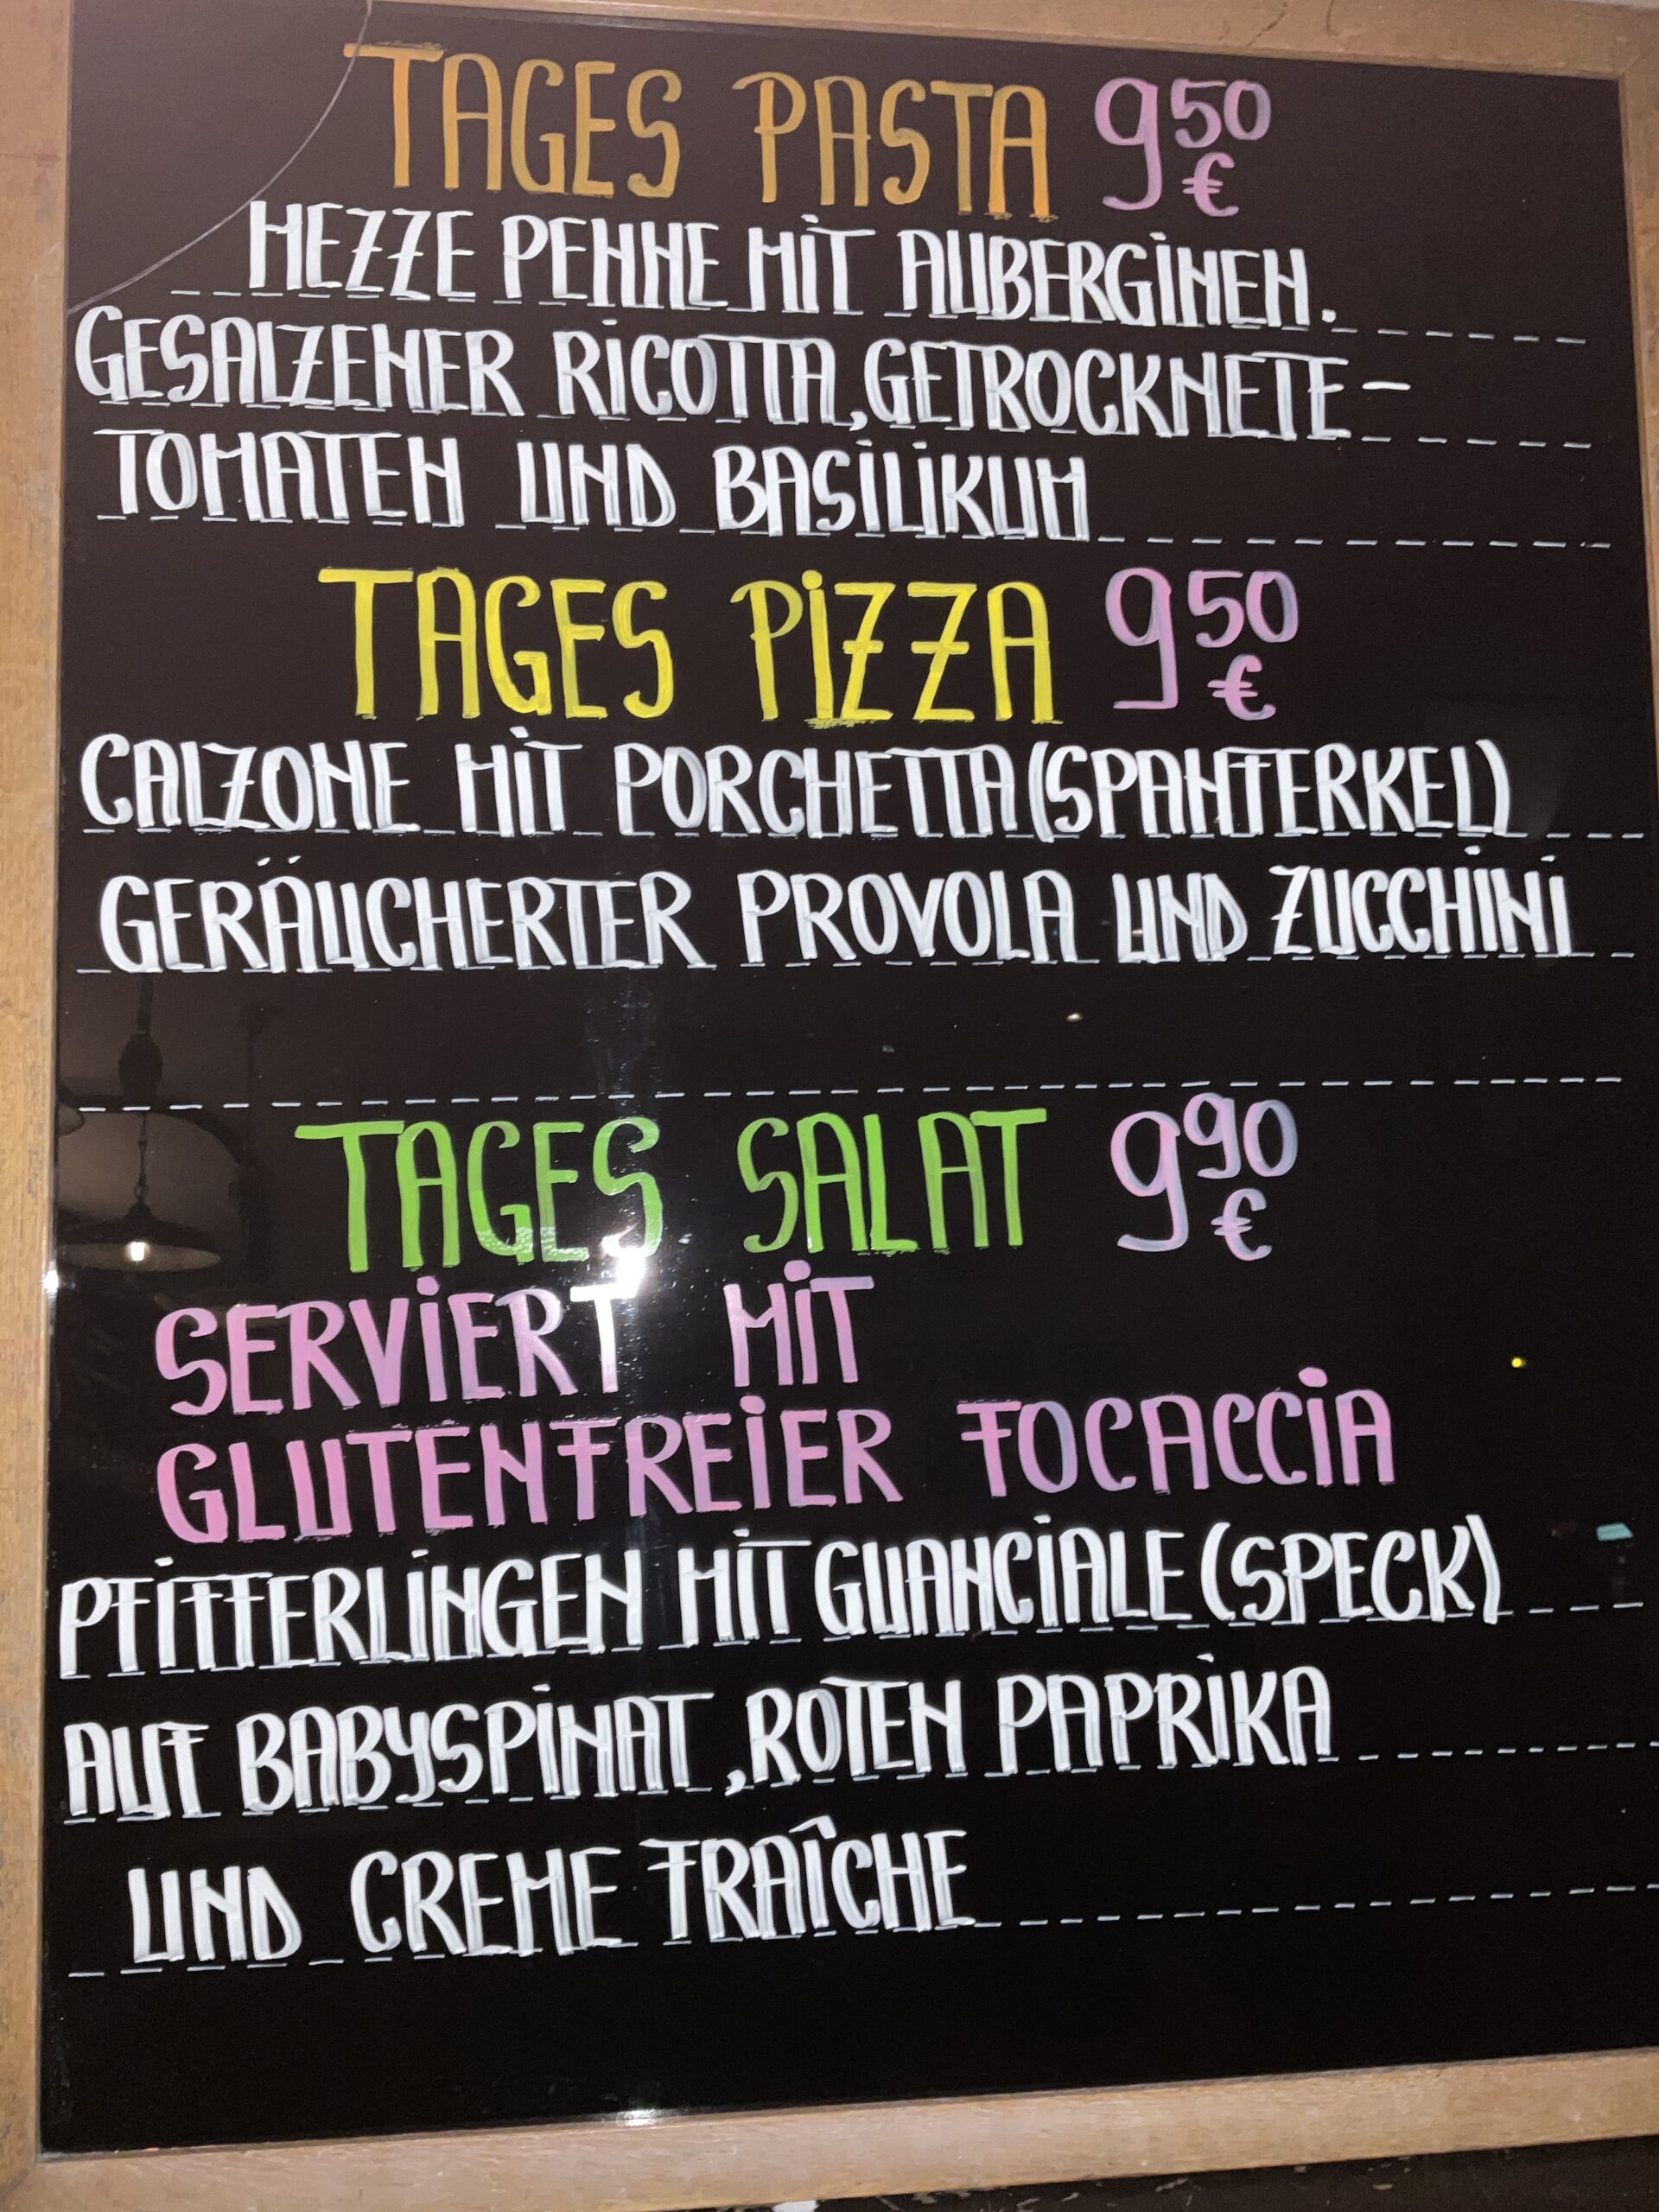 TAGES PASTA 9,50 €
MEZZE PENNE MIT AUBERGINEN.
GESALZENER RICOTTA, GETROCKNETE-
TOMATEN UND BASILIKUM
TAGES PIZZA 9,50 €
CALZONE MIT PORCHETTA (SPANFERKEL)
GERÄUCHERTER PROVOLA UND ZUCCHINI
TAGES SALAT 9,90 €
SERVIERT MIT
GLUTENFREIER FOCACCIA
PFIFFERLINGEN MIT GUANCIALE (SPECK)
AUF BABYSPINAT, ROTEN PAPRIKA
UND CREME FRAÎCHE